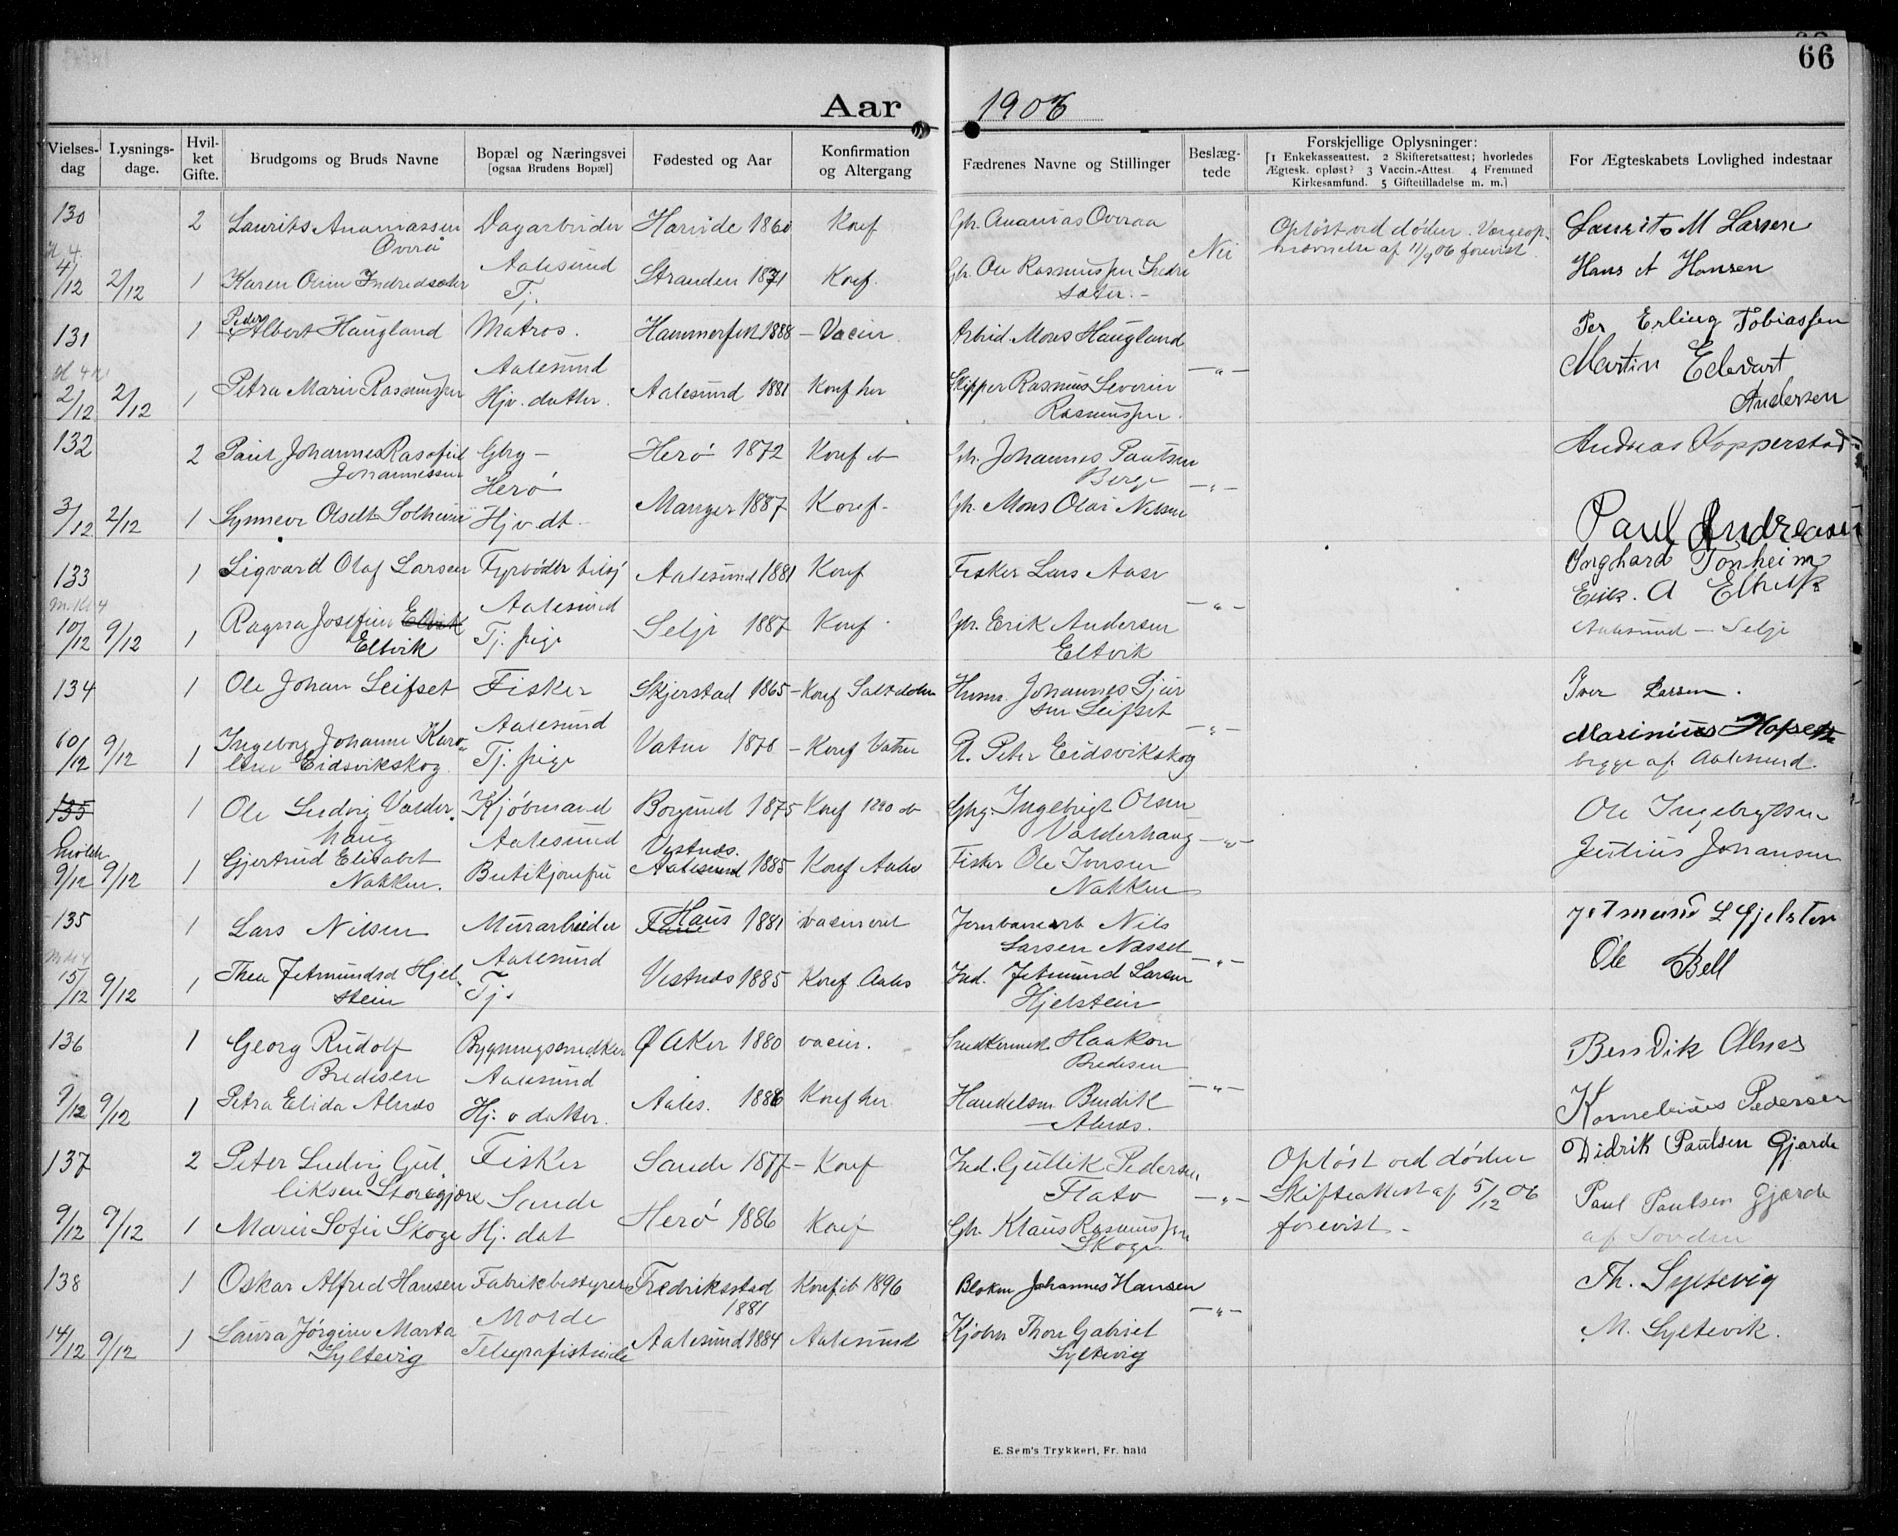 66
Aar 1906
Vielses-dag
Lysnings-dage.
Hvil-ket Gifte.
Brudgoms og Bruds Navne
Bopæl og Næringsvei [ogsaa Brudens Bopæl]
Fødested og Aar
Konfirmation og Altergang
Fædrenes Navne og Stillinger
Beslæg-tede
Forskjellige Oplysninger:
[1 Enkekasseattest. 2 Skifteretsattest; hvorledes Ægtesk. opløst? 3 Vaccin.-Attest. 4 Fremmed Kirkesamfund. 5 Giftetilladelse m. m.]
For Ægteskabets Lovlighed indestaar
130 2 Laurits Ananiassen Dagarbeider Hareide 1860 Konf Gbr. Ananias Overaa Opløst ved døden. Værgeop- Laurits M Larsen
Overå Nei nævnelse af 11/9 06 forevist.
Kl 4 Aalesund
4/12 2/12 1 Karen Oline Indredsæter Tj. Stranden 1871 Konf. Gbr. Ole Rasmussen Indre Hans A Hansen
sæter. –
131 1 Peder Albert Haugland Matros. Hammerfest 1888 – Vacin. Arbeid. Mons Haugland Per Erling Tobiassen
Kl 4 Aalesund – „ – Martin Edvart
2/12 2/12 1 Petra Marie Rasmussen Hjv. datter. Aalesund 1881 Konf her Skipper Rasmus Severin Andersen
Rasmussen.
132 2 Paul Johannes Rasofiel Gbg – Herø 1872 Konf ib Gbr. Johannes Paulsen Andreas Kopperstad
Johannessen Herø Berge – „ –
3/12 2/12 1 Synneve Olsdt Solheim Hjv. dt. Manger 1887 Konf. Gbr. Mons Olai Nilsen Paul Andreasen
133 1 Sigvard Olaf Larsen Fyrbøder tilsj Aalesund 1881 Konf Fisker Lars Aase Inghard Tonheim
Aalesund – „ – Erik. A Eltvik
10/12 9/12 1 Ragna Josefine Eltvik Tj. pige Selje 1887 Konf. Gbr. Erik Andersen Aalesund – Selje
Eltvik Eltvik
134 1 Ole Johan Leifset Fisker Skjerstad 1865 – Konf Saltdalen Husm. Johannes Sjur Iver Larsen.
Aalesund sen Leifset – „ – Marinius Hofset
10/12 9/12 1 Ingeborg Johanne Karo- Tj. pige Vatne 1876 – Konf Vatne P. Peter Eidsvikskog begge af Aalesund.
line Eidsvikskog.
135 1 Ole Ludvig Valder- Kjøbmand Borgund 1875 Konf 1890 ib Gbg. Ingebrigt Olsen Ole Ingebrigtsen
haug Aalesund Valderhaug – „ –
Molde Gjertrud Elisabet Vestnes. Julius Johansen
9/12 9/12 1 Nakken. Butikjomfru Aalesund 1885 Konf Aales Fisker Ole Jonsen
Nakken
135 1 Lars Nilsen Murarbeider Haus 1881 vacineret Jernbanearb Nils Jetmund L Gjelsten
Aalesund Larsen Nesset – „ – Ole Bell
15/12 9/12 1 Thea Jetmundsd Hjel- Tj. Vestnes 1885 Konf Aales Ind. Jetmund Larsen
stein Hjelstein
136 1 Georg Rudolf Bygningssnedker Ø Aker 1880 vacin. Snedkermest. Haakon Bendik Alnes
Bredesen Aalesund Bredesen – „ –
9/12 9/12 1 Petra Elida Alnes Hj. v datter. Aales. 1886 Konf her Handelsm Bendik Kornelius Pedersen
Alnes.
137 2 Peter Ludvig Gul- Fisker Sande 1877 – Konf Ind. Gullik Pedersen, Opløst ved døden Didrik Paulsen Gjærde
liksen Storegjære Sande Flato – „ – Skifteattest af 5/12 06 Paul Paulsen Gjærde
9/12 9/12 1 Marie Sofie Skoge Hj. dat Herø 1886 Konf Gbr. Klaus Rasmussen forevist – af Sovden
Skoge.
138 1 Oskar Alfred Hansen Fabrikbestyrer Fredriksstad Konf ib 1896 Blokm Johannes Hansen Th. Syltevig
Molde 1881 – „ –
14/12 9/12 1 Laura Jørgine Marta Telegrafistinde Aalesund 1884 Aalesund Kjøbm Thore Gabriel M. Syltevik.
Syltevig Syltevig
E. Sem's Trykkeri, Fr. hald